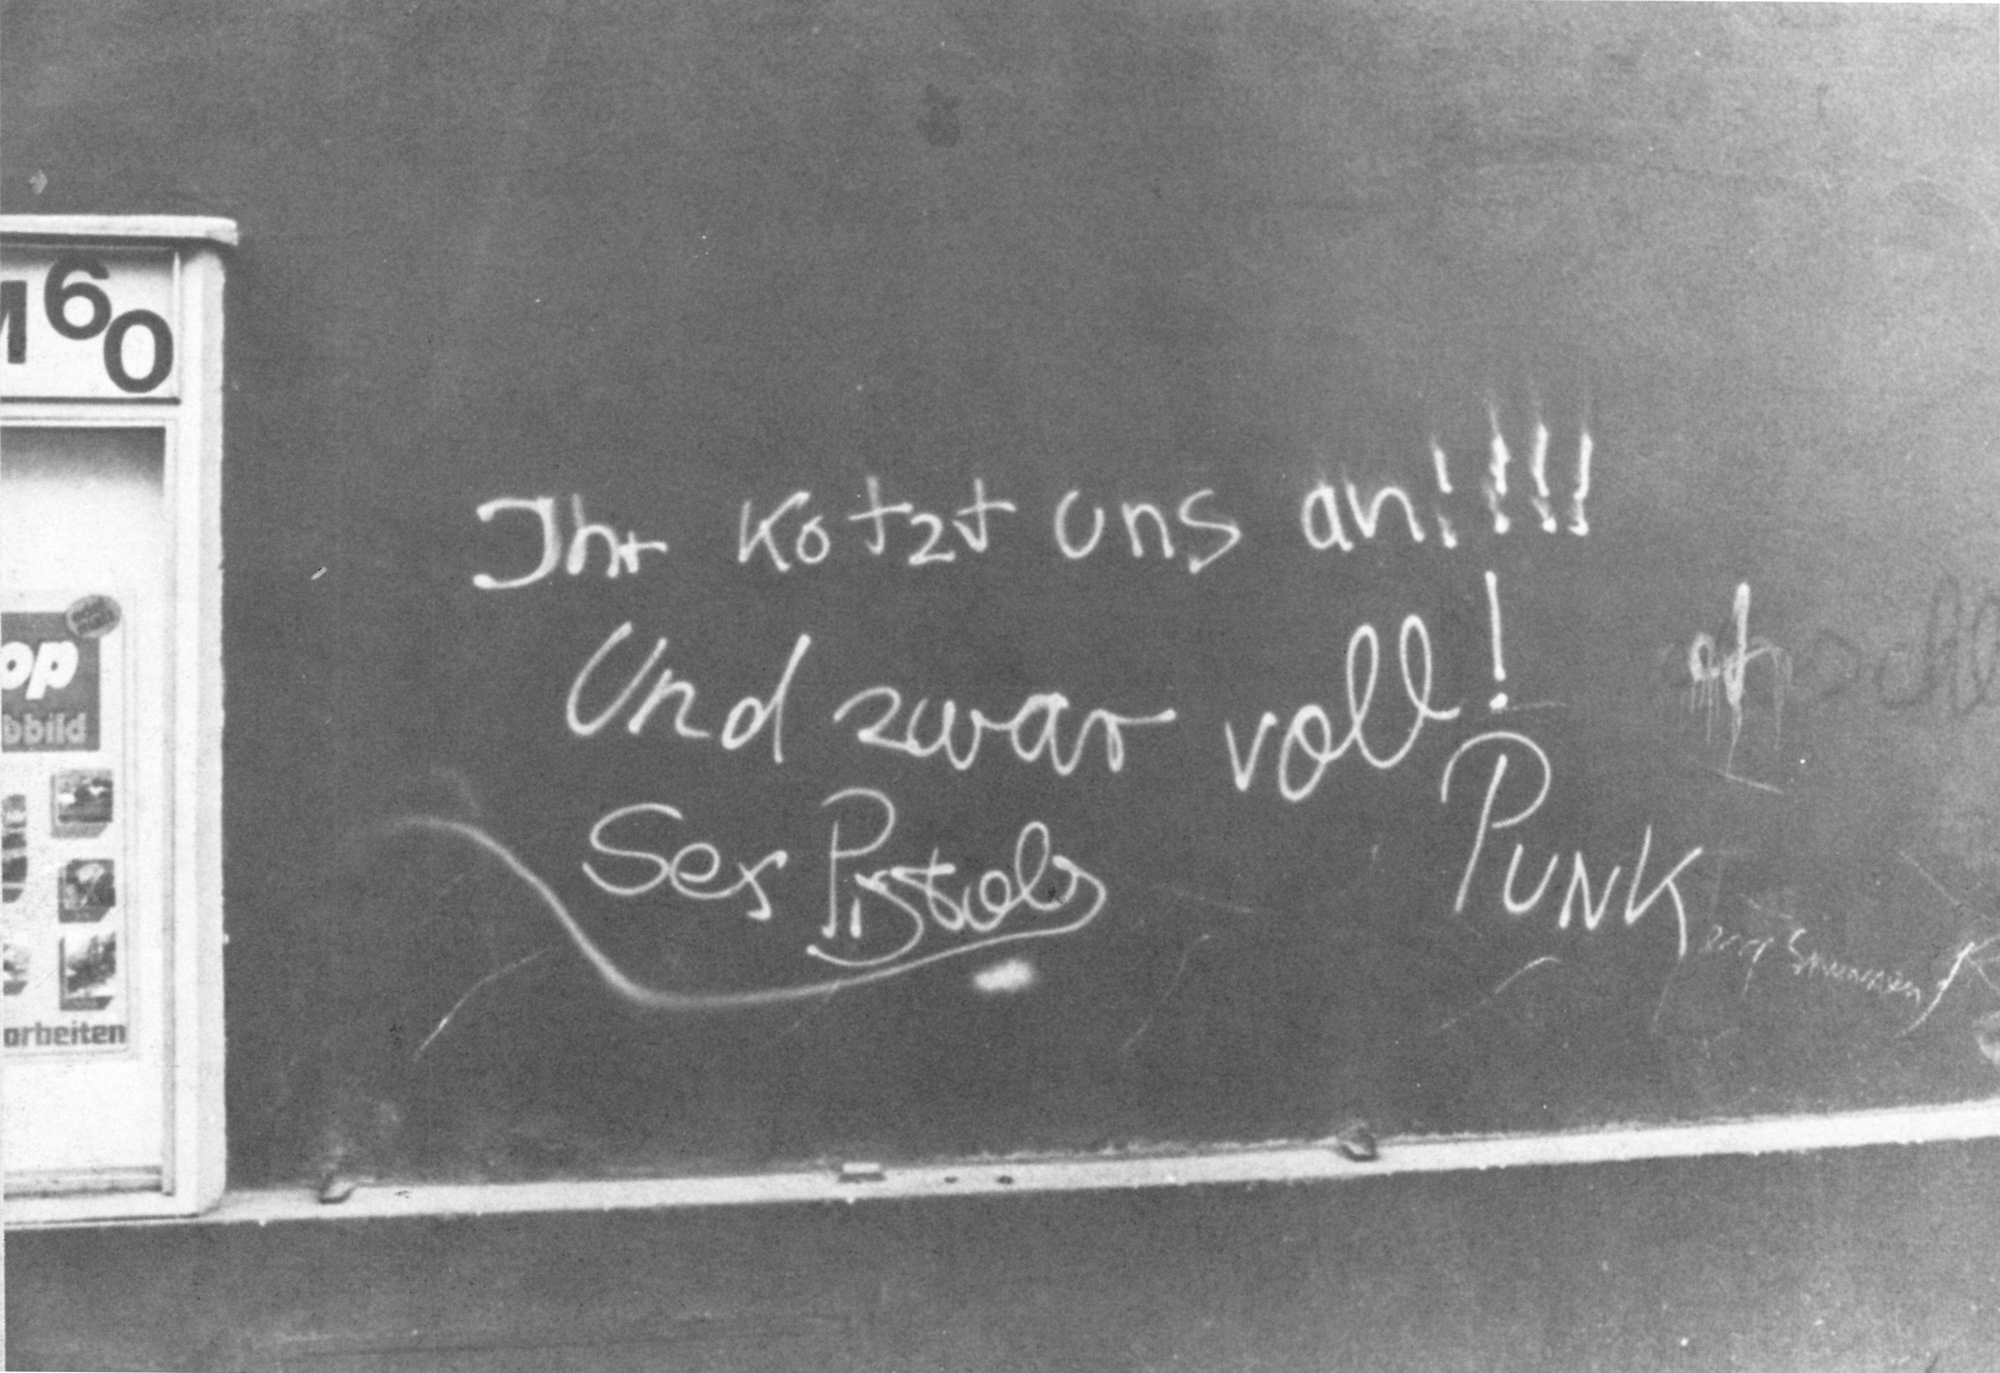 60
op
bbild
arbeiten
Ihr Kotzt uns an!!!!
Und zwar voll!
Sex Pistols
PUNK